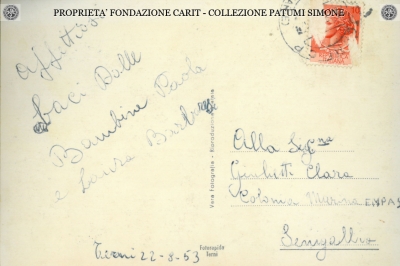 PROPRIETA' FONDAZIONE CARIT - COLLEZIONE PATUMI SIMONE
affettuosi
baci dalle
Bambine Paola
e Laura
Terni 22-8-53
Vera Fotografia - Riproduzione
Fotorapida
Terni
Alla Sig.na
Giulietti Clara
Colonia Marina ENPAS
Senigallia